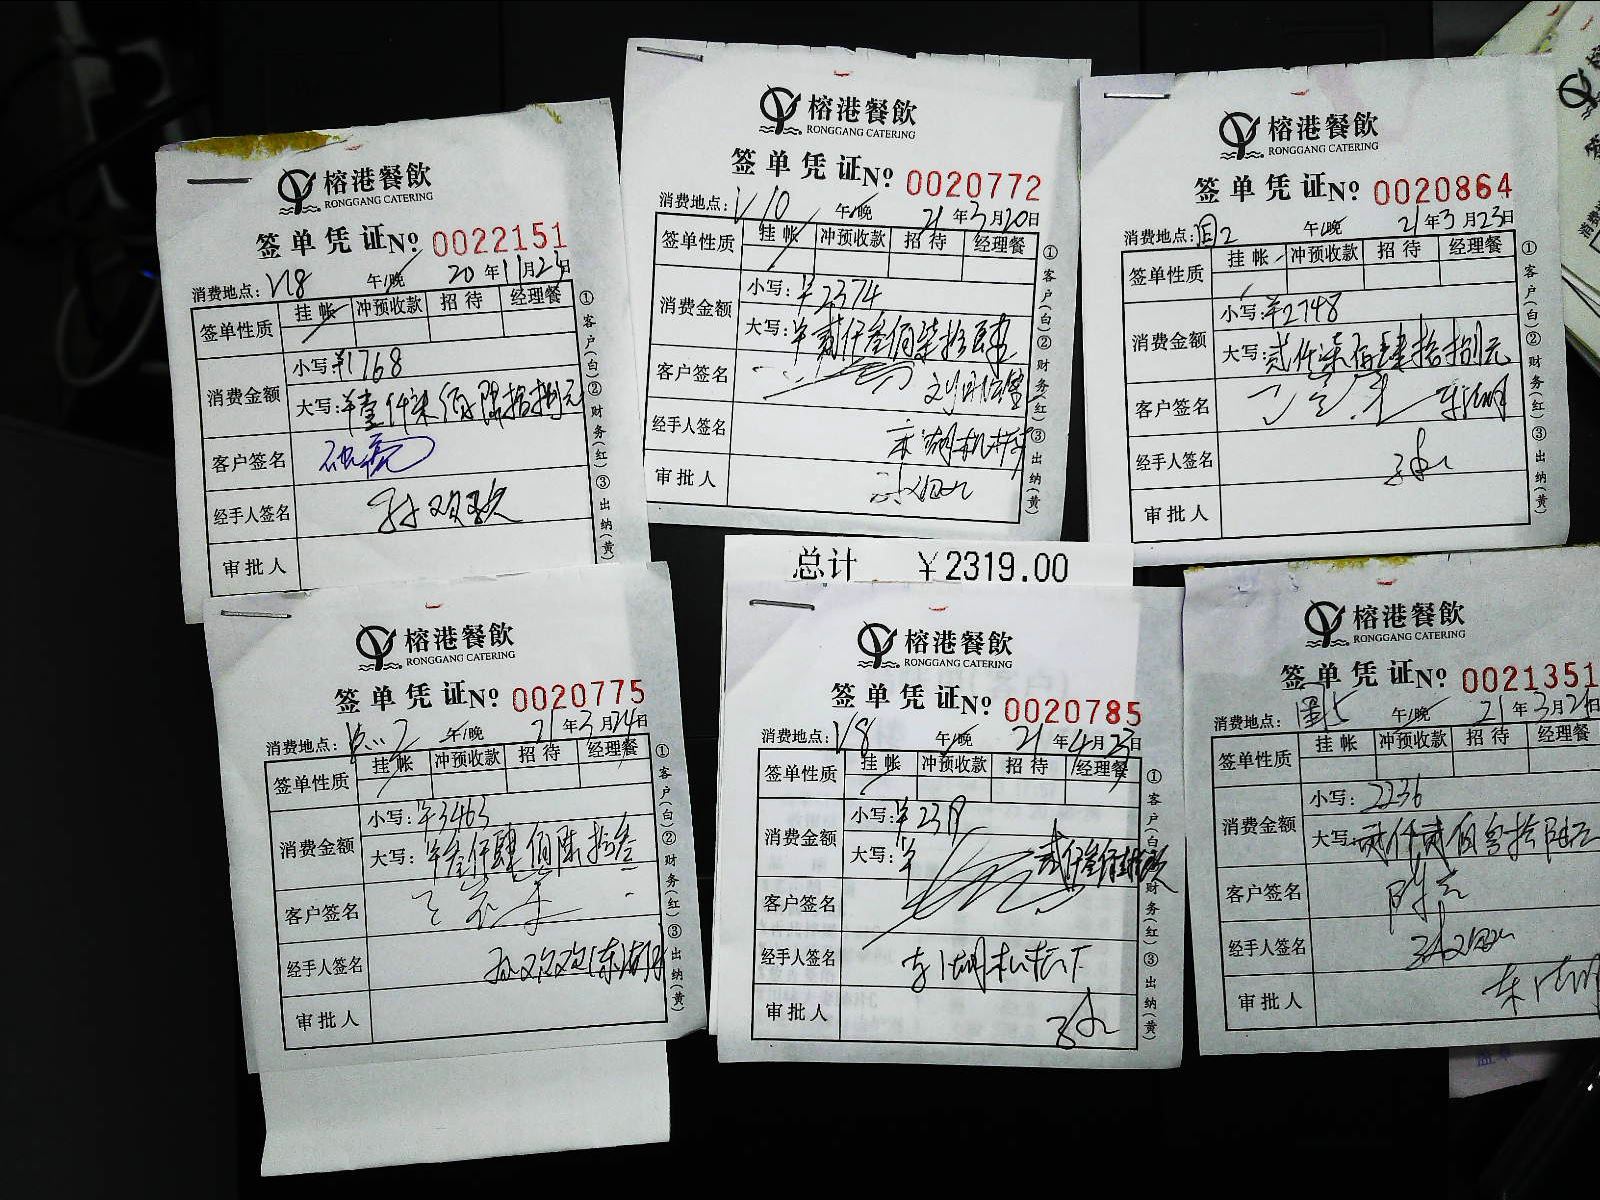 榕港餐飲
RONGGANG CATERING
签单凭证 Nº 0022151
消费地点: V18 午/晚 20年11月23日
签单性质 挂帐 冲预收款 招待 经理餐
消费金额 小写: ¥1768
大写: 壹仟柒佰陆拾捌元
客户签名
经手人签名
审批人
①客户(白)②财务(红)③出纳(黄)
榕港餐飲
RONGGANG CATERING
签单凭证 Nº 0020772
消费地点: V10 午/晚 21年3月20日
签单性质 挂帐 冲预收款 招待 经理餐
消费金额 小写: ¥2374
大写: 贰仟叁佰柒拾肆
客户签名
经手人签名
审批人
①客户(白)②财务(红)③出纳(黄)
榕港餐飲
RONGGANG CATERING
签单凭证 Nº 0020864
消费地点: 午/晚 21年3月23日
签单性质 挂帐 冲预收款 招待 经理餐
消费金额 小写: ¥2748
大写: 贰仟柒佰肆拾捌元
客户签名
经手人签名
审批人
①客户(白)②财务(红)③出纳(黄)
榕港餐飲
RONGGANG CATERING
签单凭证 Nº 0020775
消费地点: 午/晚 21年3月24日
签单性质 挂帐 冲预收款 招待 经理餐
消费金额 小写: ¥3463
大写: 叁仟肆佰陆拾叁
客户签名
经手人签名
审批人
①客户(白)②财务(红)③出纳(黄)
总计 ¥2319.00
榕港餐飲
RONGGANG CATERING
签单凭证 Nº 0020785
消费地点: V8 午/晚 21年4月23日
签单性质 挂帐 冲预收款 招待 经理餐
消费金额 小写: ¥2319
大写: 贰仟叁佰壹拾玖
客户签名
经手人签名
审批人
①客户(白)②财务(红)③出纳(黄)
榕港餐飲
RONGGANG CATERING
签单凭证 Nº 0021351
消费地点: 午/晚 21年3月26日
签单性质 挂帐 冲预收款 招待 经理餐
消费金额 小写: 2236
大写: 贰仟贰佰叁拾陆元
客户签名
经手人签名
审批人